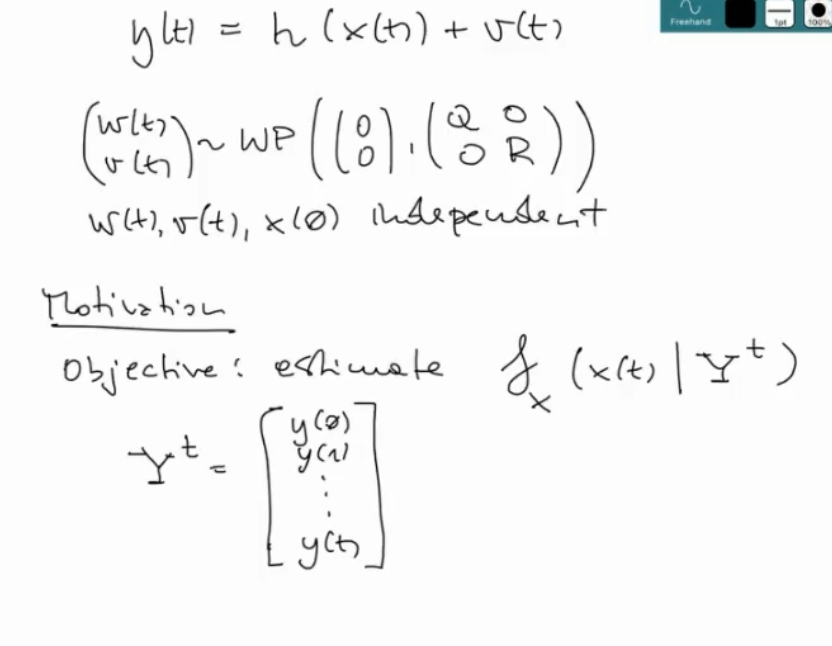 y(t) = h(x(t) + v(t)
Freehand 1pt 100%
(w(t) v(t)) ~ WP((0 0), (Q 0 0 R))
w(t), v(t), x(0) independent
Motivation
Objective: estimate f_x (x(t) | Y^t)
Y^t = [y(0)
y(1)
⋮
y(t)]